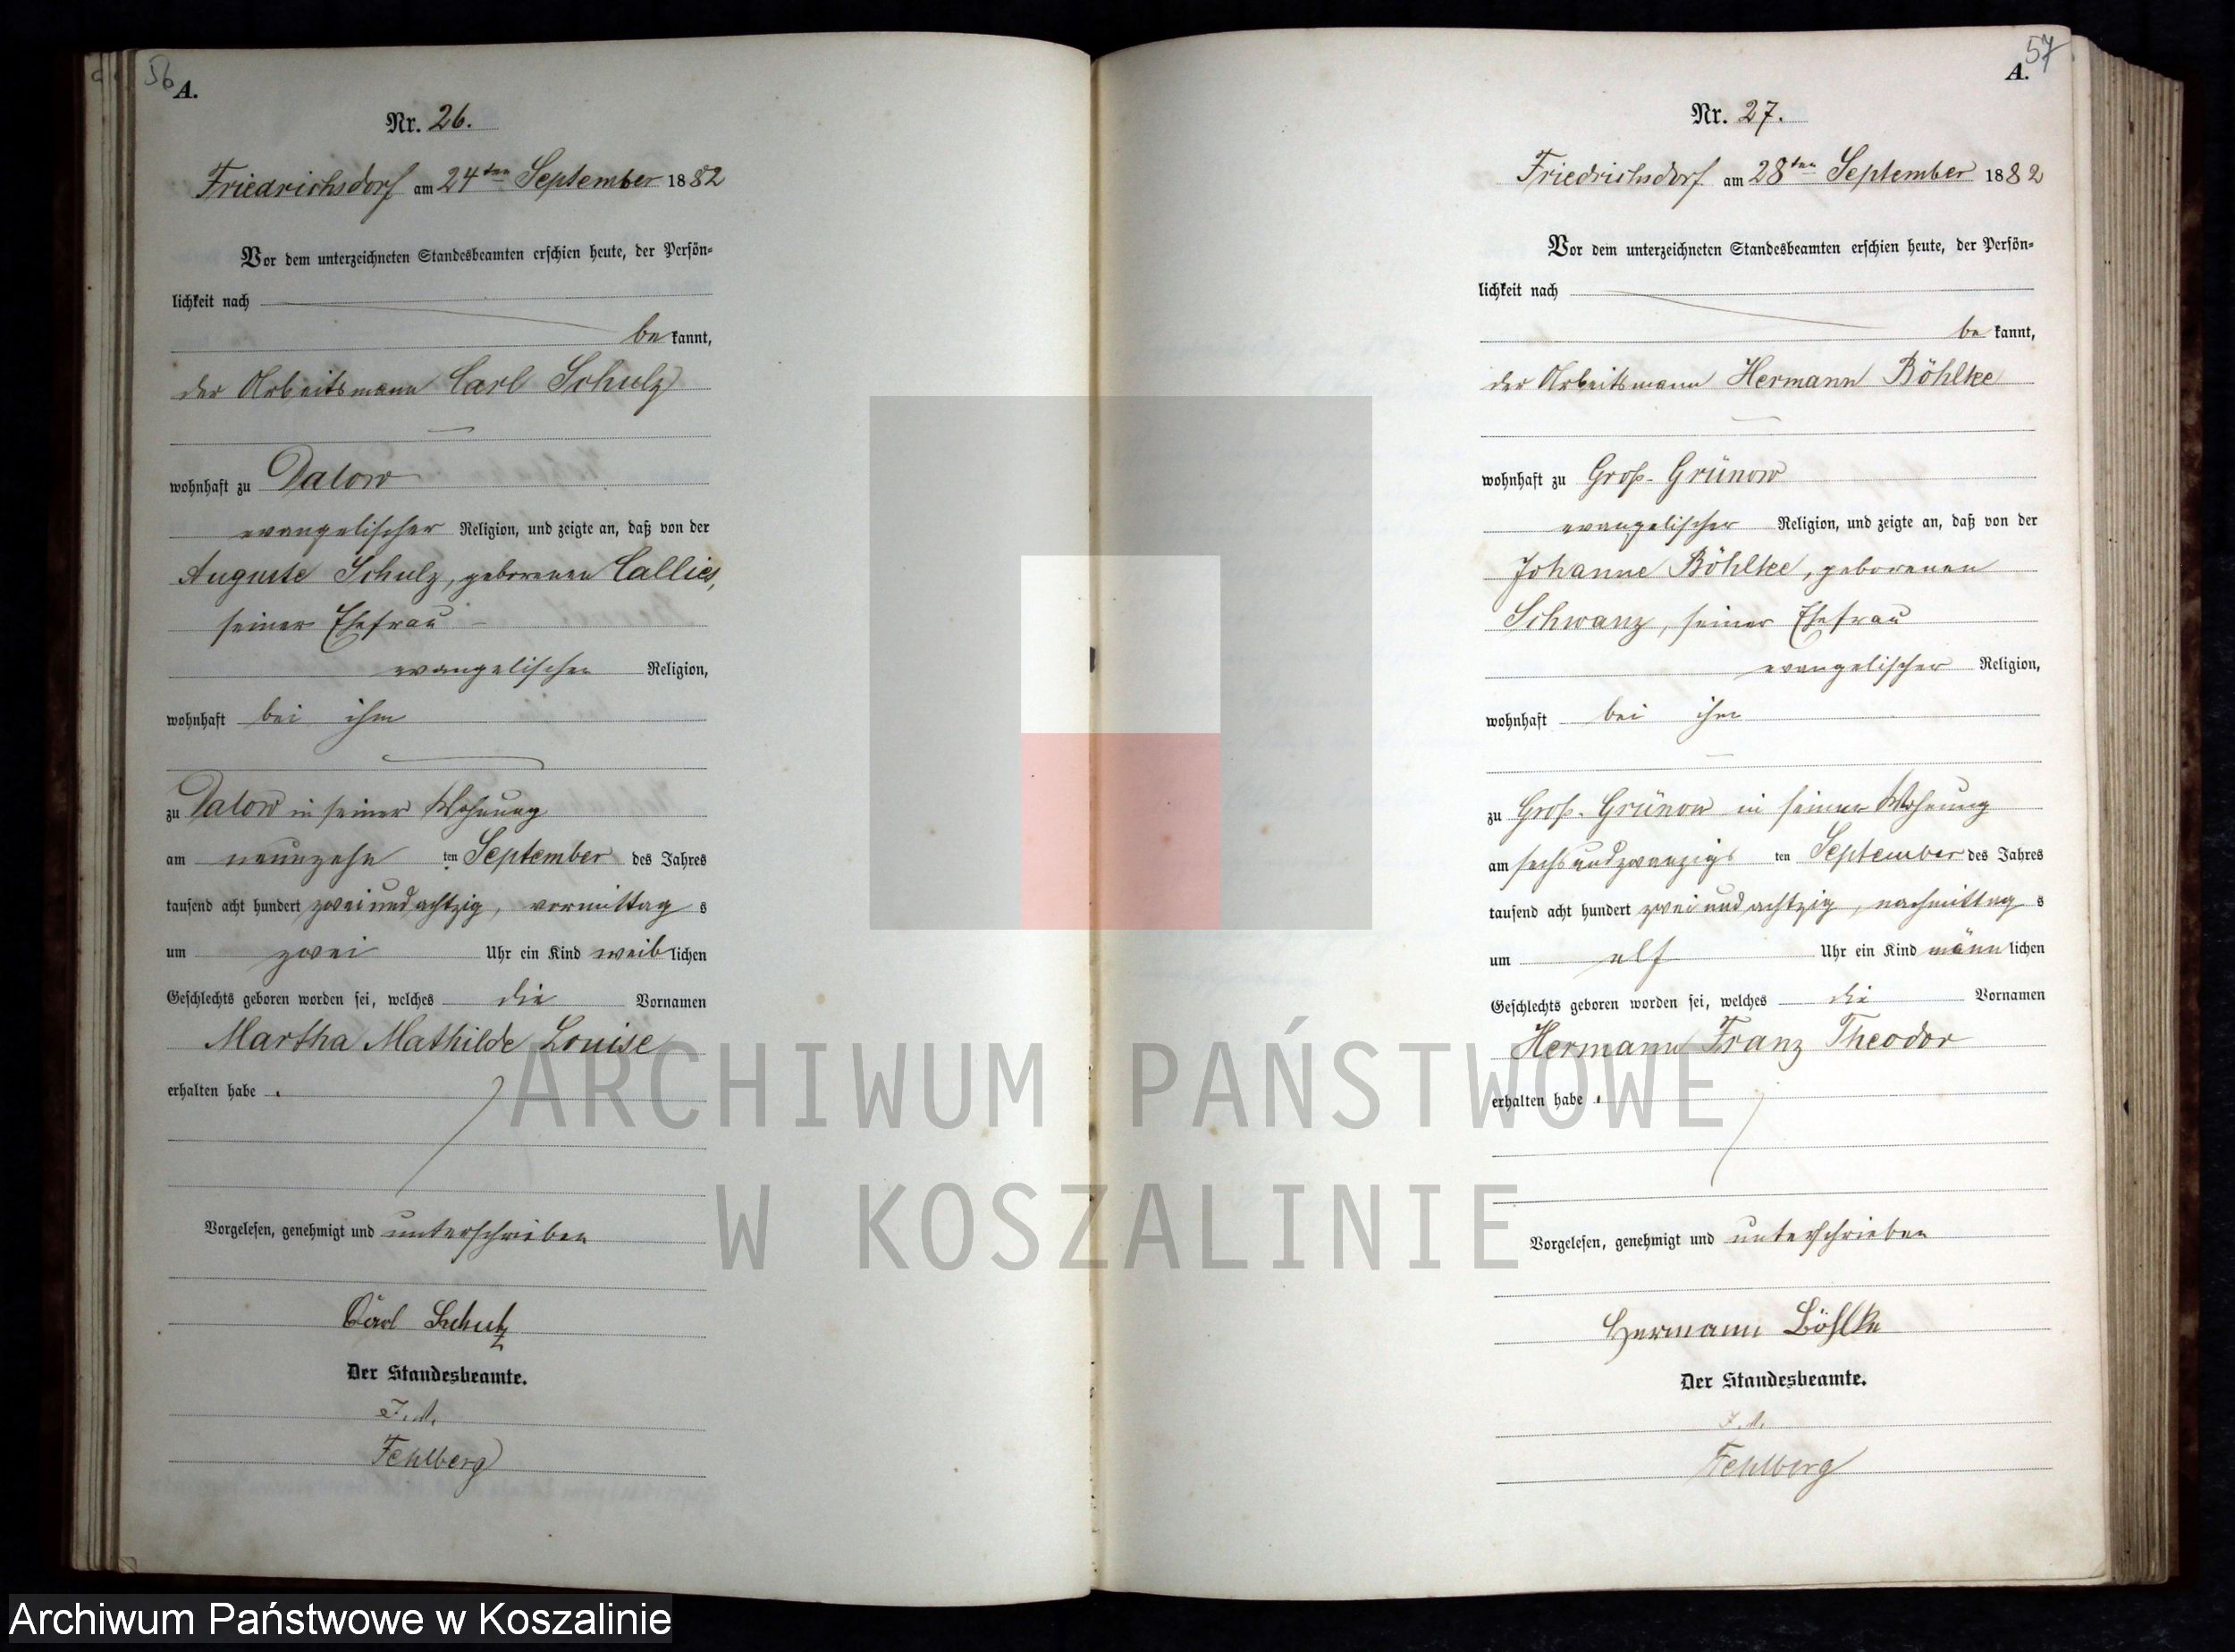 56
A.
Nr. 26.
Friedrichsdorf am 24ten September 1882
Vor dem unterzeichneten Standesbeamten erschien heute, der Persön=
lichkeit nach
be kannt,
der Arbeitsmann Carl Schulz
wohnhaft zu Dalow
evangelischer Religion, und zeigte an, daß von der
Auguste Schulz, geborenen Callies,
seiner Ehefrau
evangelischer Religion,
wohnhaft bei ihm
zu Dalow in seiner Wohnung
am neunzehn ten September des Jahres
tausend acht hundert zweiundachtzig, vormittag s
um zwei Uhr ein Kind weib lichen
Geschlechts geboren worden sei, welches die Vornamen
Martha Mathilde Louise
erhalten habe .
Vorgelesen, genehmigt und unterschrieben
Carl Schulz
Der Standesbeamte.
Fehlberg
57
A.
Nr. 27.
Friedrichsdorf am 28ten September 1882
Vor dem unterzeichneten Standesbeamten erschien heute, der Persön=
lichkeit nach
be kannt,
der Arbeitsmann Hermann Böhlke
wohnhaft zu Groß-Grünow
evangelischer Religion, und zeigte an, daß von der
Johanne Böhlke, geborenen
Schwanz, seiner Ehefrau
evangelischer Religion,
wohnhaft bei ihm
zu Groß-Grünow in seiner Wohnung
am sechsundzwanzigs ten September des Jahres
tausend acht hundert zweiundachtzig, nachmittag s
um elf Uhr ein Kind männ lichen
Geschlechts geboren worden sei, welches die Vornamen
Hermann Franz Theodor
erhalten habe .
Vorgelesen, genehmigt und unterschrieben
Hermann Böhlke
Der Standesbeamte.
Fehlberg
ARCHIWUM PAŃSTWOWE
W KOSZALINIE
Archiwum Państwowe w Koszalinie